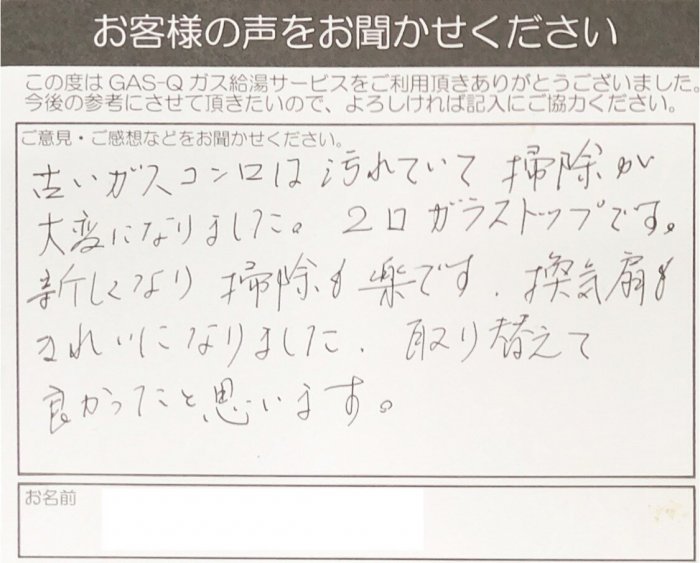 お客様の声をお聞かせください
この度は GAS-Q ガス給湯サービスをご利用頂きありがとうございました。
今後の参考にさせて頂きたいので、よろしければ記入にご協力ください。
ご意見・ご感想などをお聞かせください。
古いガスコンロは汚れていて掃除が
大変になりました。2口ガラストップです。
新しくなり掃除も楽です、換気扇も
きれいになりました、取り替えて
良かったと思います。
お名前